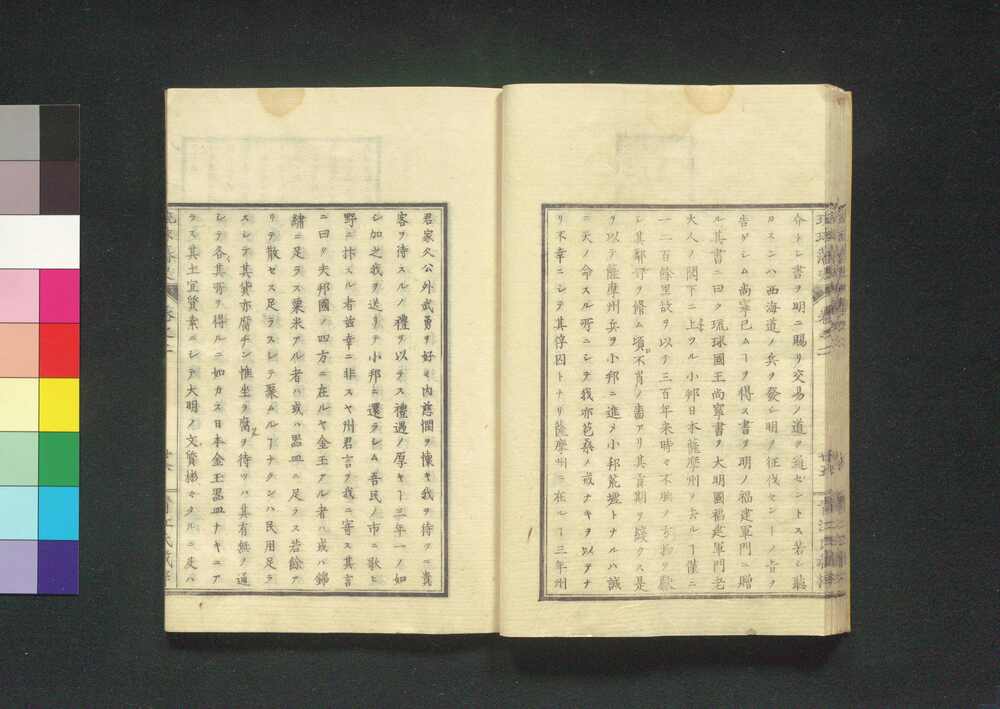 介トレ書ヲ明ニ賜リ交易ノ道ヲ通セントス若シ聽
カスンハ西海道ノ兵ヲ發シ明ノ征伐センーノ旨ヲ
告ケシム尚寧已ムーヲ得ス書ヲ明ノ福建軍門ニ贈
ル其書ニ曰ク琉球國王尚寧書ヲ大明國福建軍門老
大人ノ閤下ニ上ツル小邦日本薩摩州ヲ去ルー僅ニ
一二百餘里故ヲ以テ三百年来時々不腆ノ方物ヲ獻
シ其鄰好ヲ修ム頃不肖ノ嗇アリ其貢期ヲ錢クス是
ヲ以テ薩摩州兵ヲ小邦ニ進メ小邦荒墟トナルハ誠
ニ天ノ命スル所ニシテ我亦苞桑ノ戒ナキヲ以テナ
リ不幸ニシテ其俘囚トナリ薩摩州ニ在ルー三年州
君家久公外武勇ヲ好ミ内慈憫ヲ懐キ我ヲ待ツニ貴
客ヲ待スルノ禮ヲ以テス禮遇ノ厚キー三年一ノ如
シ加之我ヲ送リテ小邦ニ還ラシム吾民ノ市ニ歌ヒ
野ニ抃スル者豈幸ニ非スヤ州君言ヲ我ニ寄ス其言
ニ曰ク夫邦國ノ四方ニ在ルヤ金玉アル者ハ或ハ錦
繡ニ足ラス粟米アル者ハ或ハ器皿ニ足ラス若餘ア
リテ散セス足ラスシテ聚ムルーナクンハ民用足ラ
スシテ其貨亦腐チン惟坐ヲ腐ヲ待ツハ其有無ヲ通
シテ各其所ヲ得ルニ如カス日本金玉器皿ナキニア
ラス其土宜質素ニシテ大明ノ文質彬々タルニ及ハ